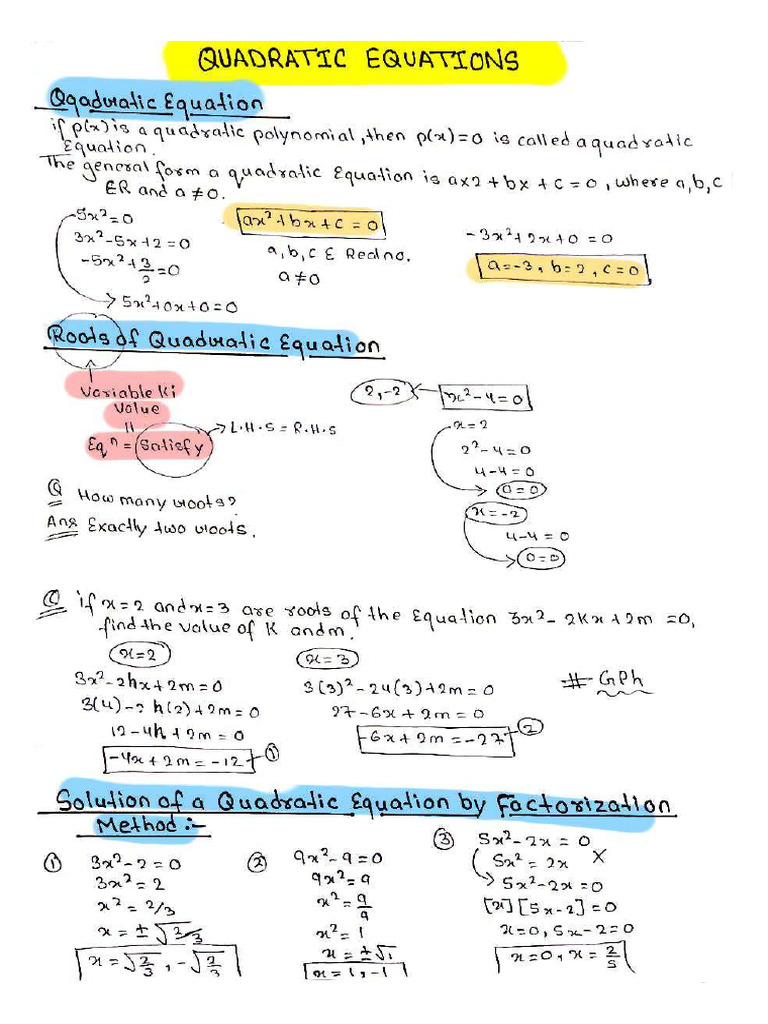 QUADRATIC EQUATIONS
Qqadratic Equation
if p(x) is a quadratic polynomial, then p(x)=0 is called a quadratic
Equation.
The general form a quadratic Equation is ax2+bx+c=0, where a,b,c
ER and a≠0.
5x²=0
3x²-5x+2=0
-5x²+3/2=0
5x²+0x+0=0
ax²+bx+c=0
a,b,c E Real no.
a≠0
-3x²+2x+0=0
a=-3, b=2, c=0
Roots of Quadratic Equation
Variable Ki
Value
=
Eqⁿ = Satisfy
L.H.S = R.H.S
2,-2
x²-4=0
x=2
2²-4=0
4-4=0
0=0
x=-2
4-4=0
0=0
Q How many roots?
Ans Exactly two roots.
Q if x=2 and x=3 are roots of the Equation 3x²-2Kx+2m=0,
find the value of K and m.
x=2
3x²-2hx+2m=0
3(4)-2h(2)+2m=0
12-4h+2m=0
-4x+2m=-12 ①
x=3
3(3)²-24(3)+2m=0
27-6x+2m=0
-6x+2m=-27 ②
# GPh
Solution of a Quadratic Equation by Factorization
Method:-
① 3x²-2=0
3x²=2
x²=2/3
x=±√2/3
x=√2/3, -√2/3
② 9x²-9=0
9x²=9
x²=9/9
x²=1
x=±√1
x=1,-1
③ 5x²-2x=0
5x²=2x X
5x²-2x=0
[x][5x-2]=0
x=0, 5x-2=0
x=0, x=2/5